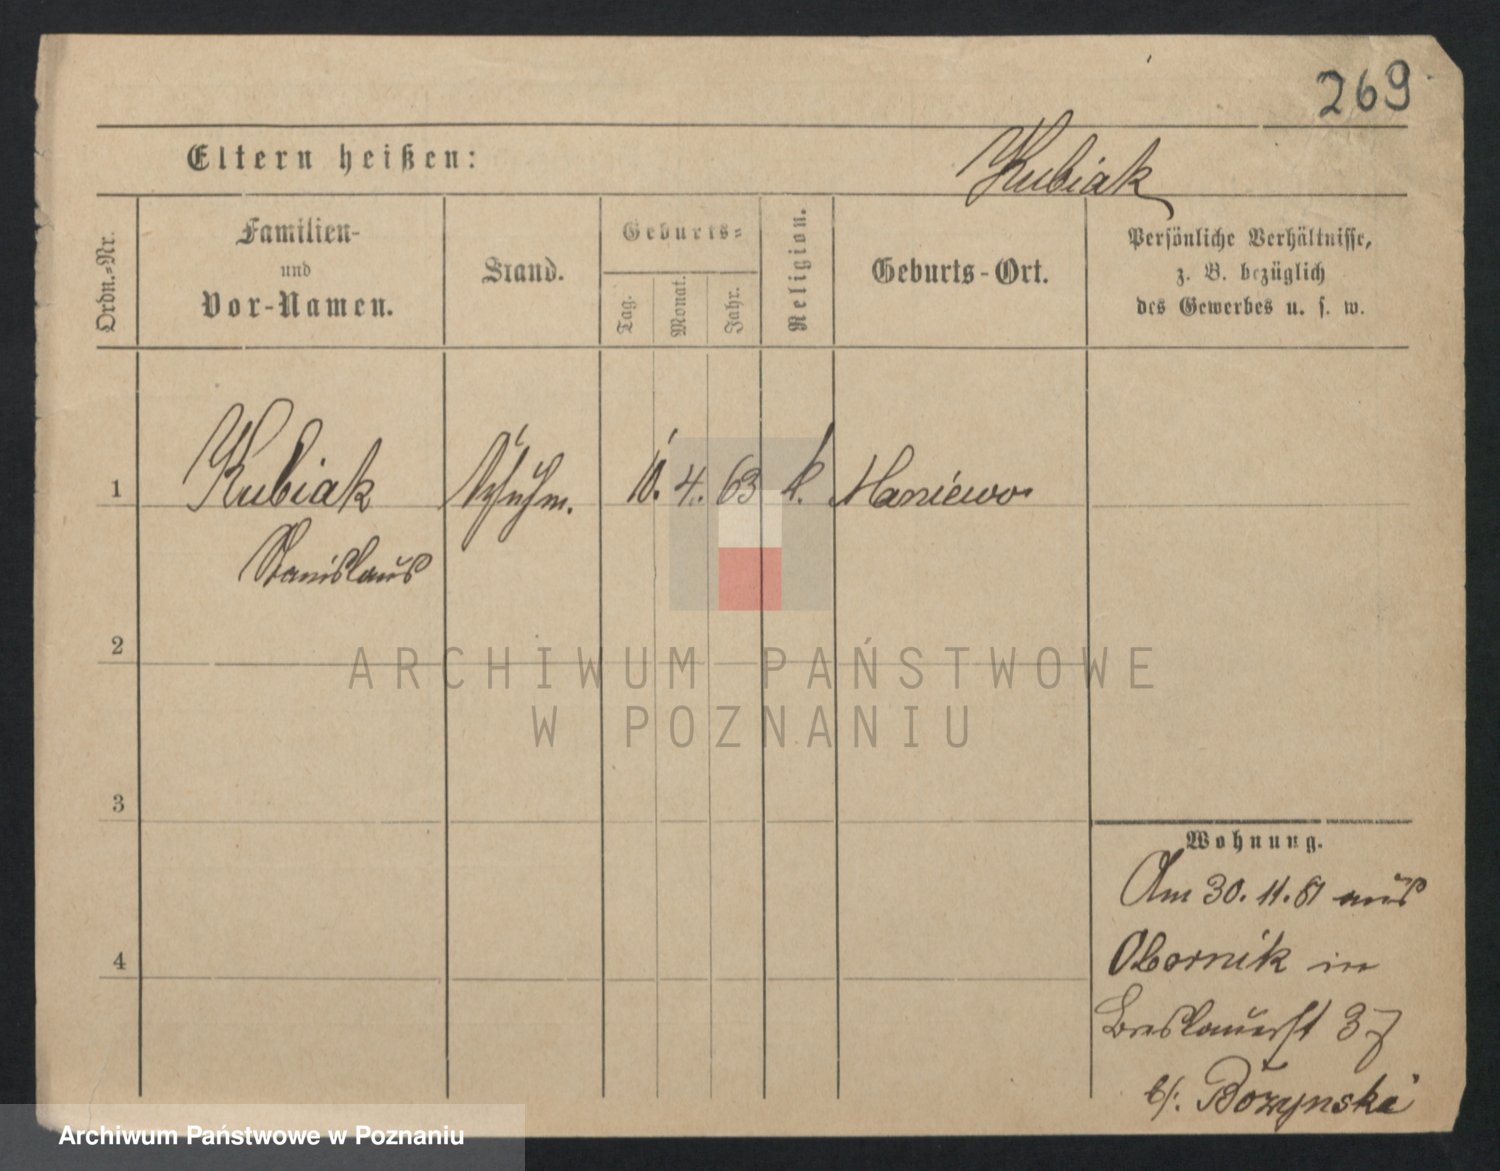 269
Eltern heißen:
Kubiak
Ordn.-Nr.
Familien-
und
Vor-Namen.
Stand.
Geburts-
Tag.
Monat.
Jahr.
Religion.
Geburts-Ort.
Persönliche Verhältnisse,
z. B. bezüglich
des Gewerbes u. s. w.
1 Kubiak 10. 4. 63 k. Maniewo
Stanislaus
2
ARCHIWUM PAŃSTWOWE
W POZNANIU
3
Wohnung.
Am 30. 11. 81 aus
4
Obornik in
Breslauerst 37
b/. Bożynski
Archiwum Państwowe w Poznaniu